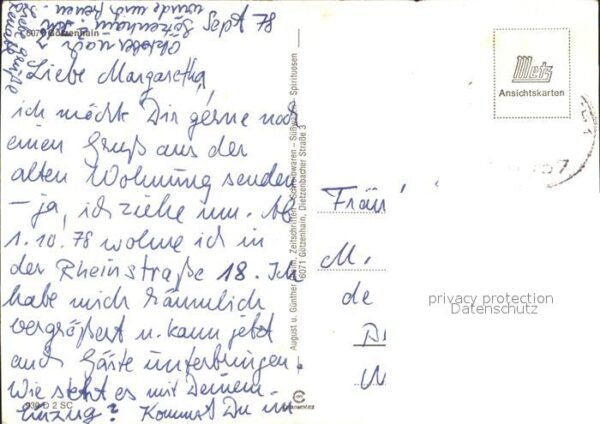 Sept 78
6071 Götzenhain
Liebe Margaretha,
ich möcht Dir gerne noch
einen Gruß aus der
alten Wohnung senden
– ja, ich ziehe um. Ab
1.10.78 wohne ich in
der Rheinstraße 18. Ich
habe mich räumlich
vergrößert u. kann jetzt
auch Gäste unterbringen.
Wie steht es mit Deinem
Einzug? Kommst Du im
Oktober nach
Götzenhain? Ich
würde mich freuen.
930 D 2 SC
August u. Günther Zeitschriften Schreibwaren – Spirituosen
6071 Götzenhain, Dietzenbacher Straße 3
Metz
Ansichtskarten
Fräu
M.
de
privacy protection
Datenschutz